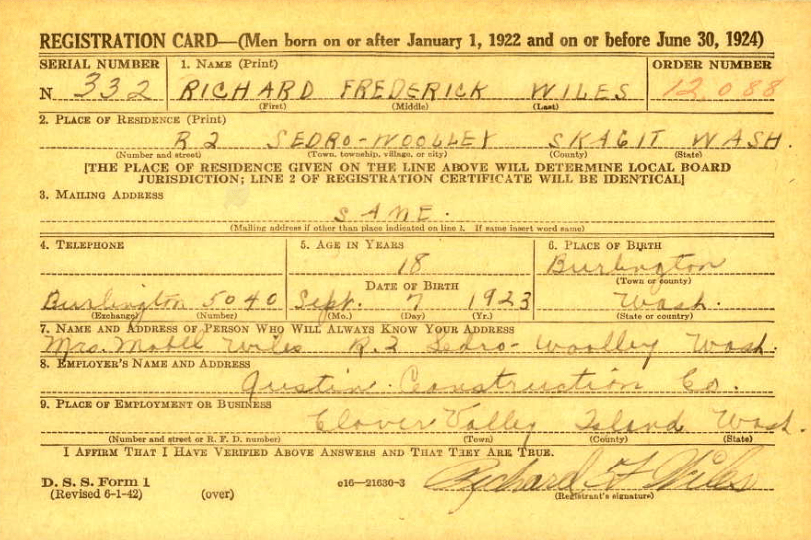 REGISTRATION CARD—(Men born on or after January 1, 1922 and on or before June 30, 1924)
SERIAL NUMBER 1. NAME (Print) ORDER NUMBER
N 332 RICHARD FREDERICK WILES 12,088
(First) (Middle) (Last)
2. PLACE OF RESIDENCE (Print)
R2 SEDRO-WOOLLEY SKAGIT WASH.
(Number and street) (Town, township, village, or city) (County) (State)
[THE PLACE OF RESIDENCE GIVEN ON THE LINE ABOVE WILL DETERMINE LOCAL BOARD
JURISDICTION; LINE 2 OF REGISTRATION CERTIFICATE WILL BE IDENTICAL]
3. MAILING ADDRESS
SAME.
(Mailing address if other than place indicated on line 2. If same insert word same)
4. TELEPHONE 5. AGE IN YEARS 6. PLACE OF BIRTH
18 Burlington
DATE OF BIRTH (Town or county)
Burlington 5040 Sept. 7 1923 Wash.
(Exchange) (Number) (Mo.) (Day) (Yr.) (State or country)
7. NAME AND ADDRESS OF PERSON WHO WILL ALWAYS KNOW YOUR ADDRESS
Mrs. Mable Wiles R.2 Sedro-Woolley Wash.
8. EMPLOYER'S NAME AND ADDRESS
Austin Construction Co.
9. PLACE OF EMPLOYMENT OR BUSINESS
Clover Valley Island Wash.
(Number and street or R. F. D. number) (Town) (County) (State)
I AFFIRM THAT I HAVE VERIFIED ABOVE ANSWERS AND THAT THEY ARE TRUE.
D. S. S. Form 1 c16—21630-3 Richard F Wiles
(Revised 6-1-42) (over) (Registrant's signature)